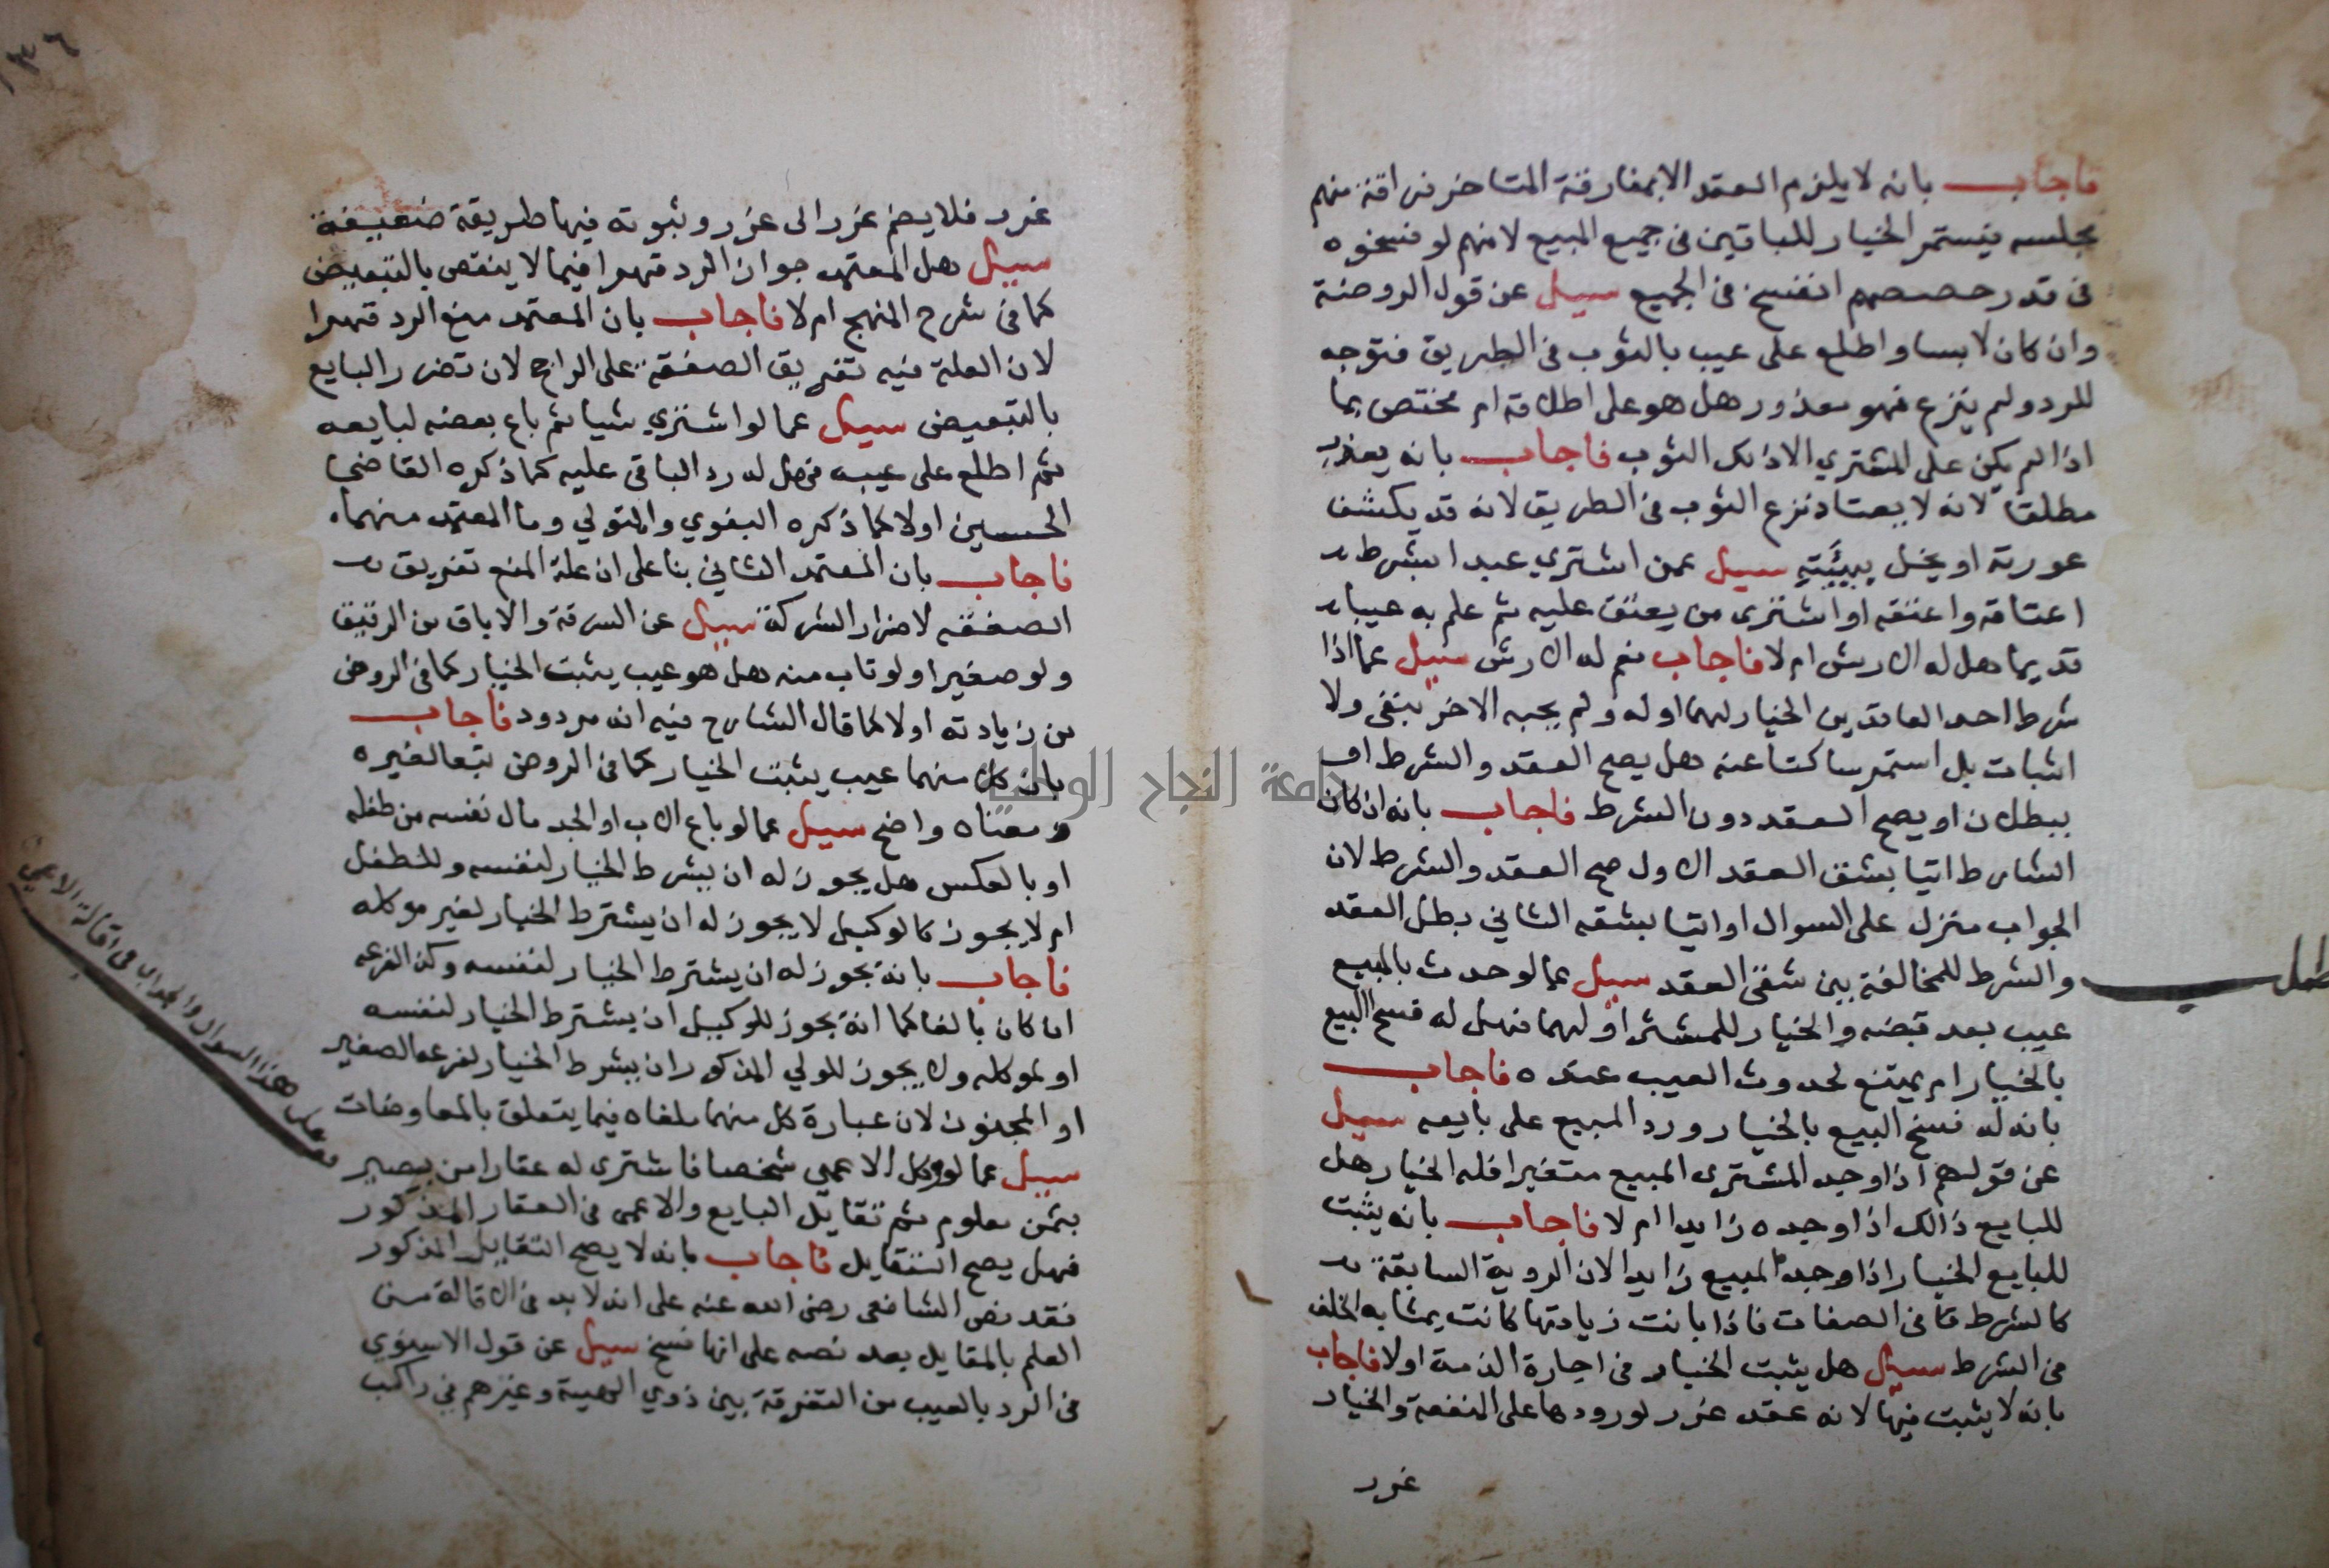 فاجاب بانه لا يلزم العقد الا بمفارقة المتاخر فراقه منهم
مجلسه فيستمر الخيار للباقين في جميع المبيع لانهم لو فسخوه
في قدر حصصهم انفسخ في الجميع سيل عن قول الروضة
وان كان لابسا واطلع على عيب بالثوب في الطريق فتوجه
للرد ولم ينزع فهو معذور هل هو على اطلاقه ام مختص بما
اذا لم يكن على المشتري الا ذلك الثوب فاجاب بانه يعذر
مطلقا لانه لا يعتاد نزع الثوب في الطريق لانه قد يكشف
عورته او يخل بهيئته سيل عمن اشترى عبدا بشرط
اعتاقه واعتقه او اشترى من يعتق عليه ثم علم به عيبا
قديما هل له الارش ام لا فاجاب نعم له الارش سيل عما اذا
شرط احد العاقدين الخيار لهما او له ولم يجبه الاخر بنفي ولا
اثبات بل استمر ساكتا عنه هل يصح العقد والشرط او
يبطلان او يصح العقد دون الشرط فاجاب بانه ان كان
الشارط اتيا بشق العقد الاول صح العقد والشرط لان
الجواب منزل على السوال او اتيا بشقه الثاني بطل العقد
والشرط للمخالفة بين شقي العقد سيل عما لو حدث بالمبيع
عيب بعد قبضه والخيار للمشتر او لهما فهل له فسخ البيع
بالخيار ام يمتنع لحدوث العيب عنده فاجاب
بانه له فسخ البيع بالخيار ورد المبيع على بايعه سيل
عن قولهم اذا وجد المشترى المبيع متغيرا فله الخيار هل
للبايع ذالك اذا وجده زايدا ام لا فاجاب بانه يثبت
للبايع الخيار اذا وجد المبيع زايدا لان الروية السابقة
كالشرط في الصفات فاذا بانت زيادتها كانت بمثابه الخلف
في الشرط سيل هل يثبت الخيار في اجارة الذمة اولا فاجاب
بانه لا يثبت فيها لانه عقد غرر لورودها على المنفعة والخيار
غرر
غرر فلا يضم غرر الى غرر وثبوته فيها طريقة ضعيفة
سيل هل المعتمد جواز الرد قهرا فيما لا ينقص بالتبعيض
كما في شرح المنهج ام لا فاجاب بان المعتمد منع الرد قهرا
لان العلة فيه تفريق الصفقة على الراجح لان تضرر البايع
بالتبعيض سيل عما لو اشترى شيا ثم باع بعضه لبايعه
ثم اطلع على عيبه فهل له رد الباقي عليه كما ذكره القاضي
الحسين اولا كما ذكره البغوي والمتولي وما المعتمد منهما
فاجاب بان المعتمد الثاني بنا على ان علة المنع تفريق
الصفقه لا ضرار الشركة سيل عن السرقة والاباق من الرقيق
ولو صغيرا ولو تاب منه هل هو عيب يثبت الخيار كما في الروض
من زيادته اولا كما قال الشارح فيه انه مردود فاجاب
بان كل منهما عيب يثبت الخيار كما في الروض تبعا لغيره
ومعناه واضح سيل عما لو باع الاب او الجد مال نفسه من طفله
او بالعكس هل يجوز له ان يشرط الخيار لنفسه وللطفل
ام لا يجوز كالوكيل لا يجوز له ان يشترط الخيار لغير موكله
فاجاب بانه يجوز له ان يشترط الخيار لنفسه وكذا لفرعه
ان كان بالغا كما انه يجوز للوكيل ان يشترط الخيار لنفسه
او لموكله ولا يجوز للولي المذكور ان يشرط الخيار لفرعه الصغير
او المجنون لان عبارة كل منهما ملغاه فيما يتعلق بالمعاوضات
سيل عما لو وكل الاعمى شخصا فاشترى له عقارا من بصير
بثمن معلوم ثم تقايل البايع والاعمى في العقار المذكور
فهل يصح التقايل فاجاب بانه لا يصح التقايل المذكور
فقد نص الشافعى رضى الله عنه على انه لا بد في الاقالة من
العلم بالمقايل بعد نصه على انها فسخ سيل عن قول الاسنوي
في الرد بالعيب من التفرقة بين ذوي الهيية وغيرهم في راكب
هذا السوال والجواب في اقالة الاعمى
جامعة النجاح الوطنية